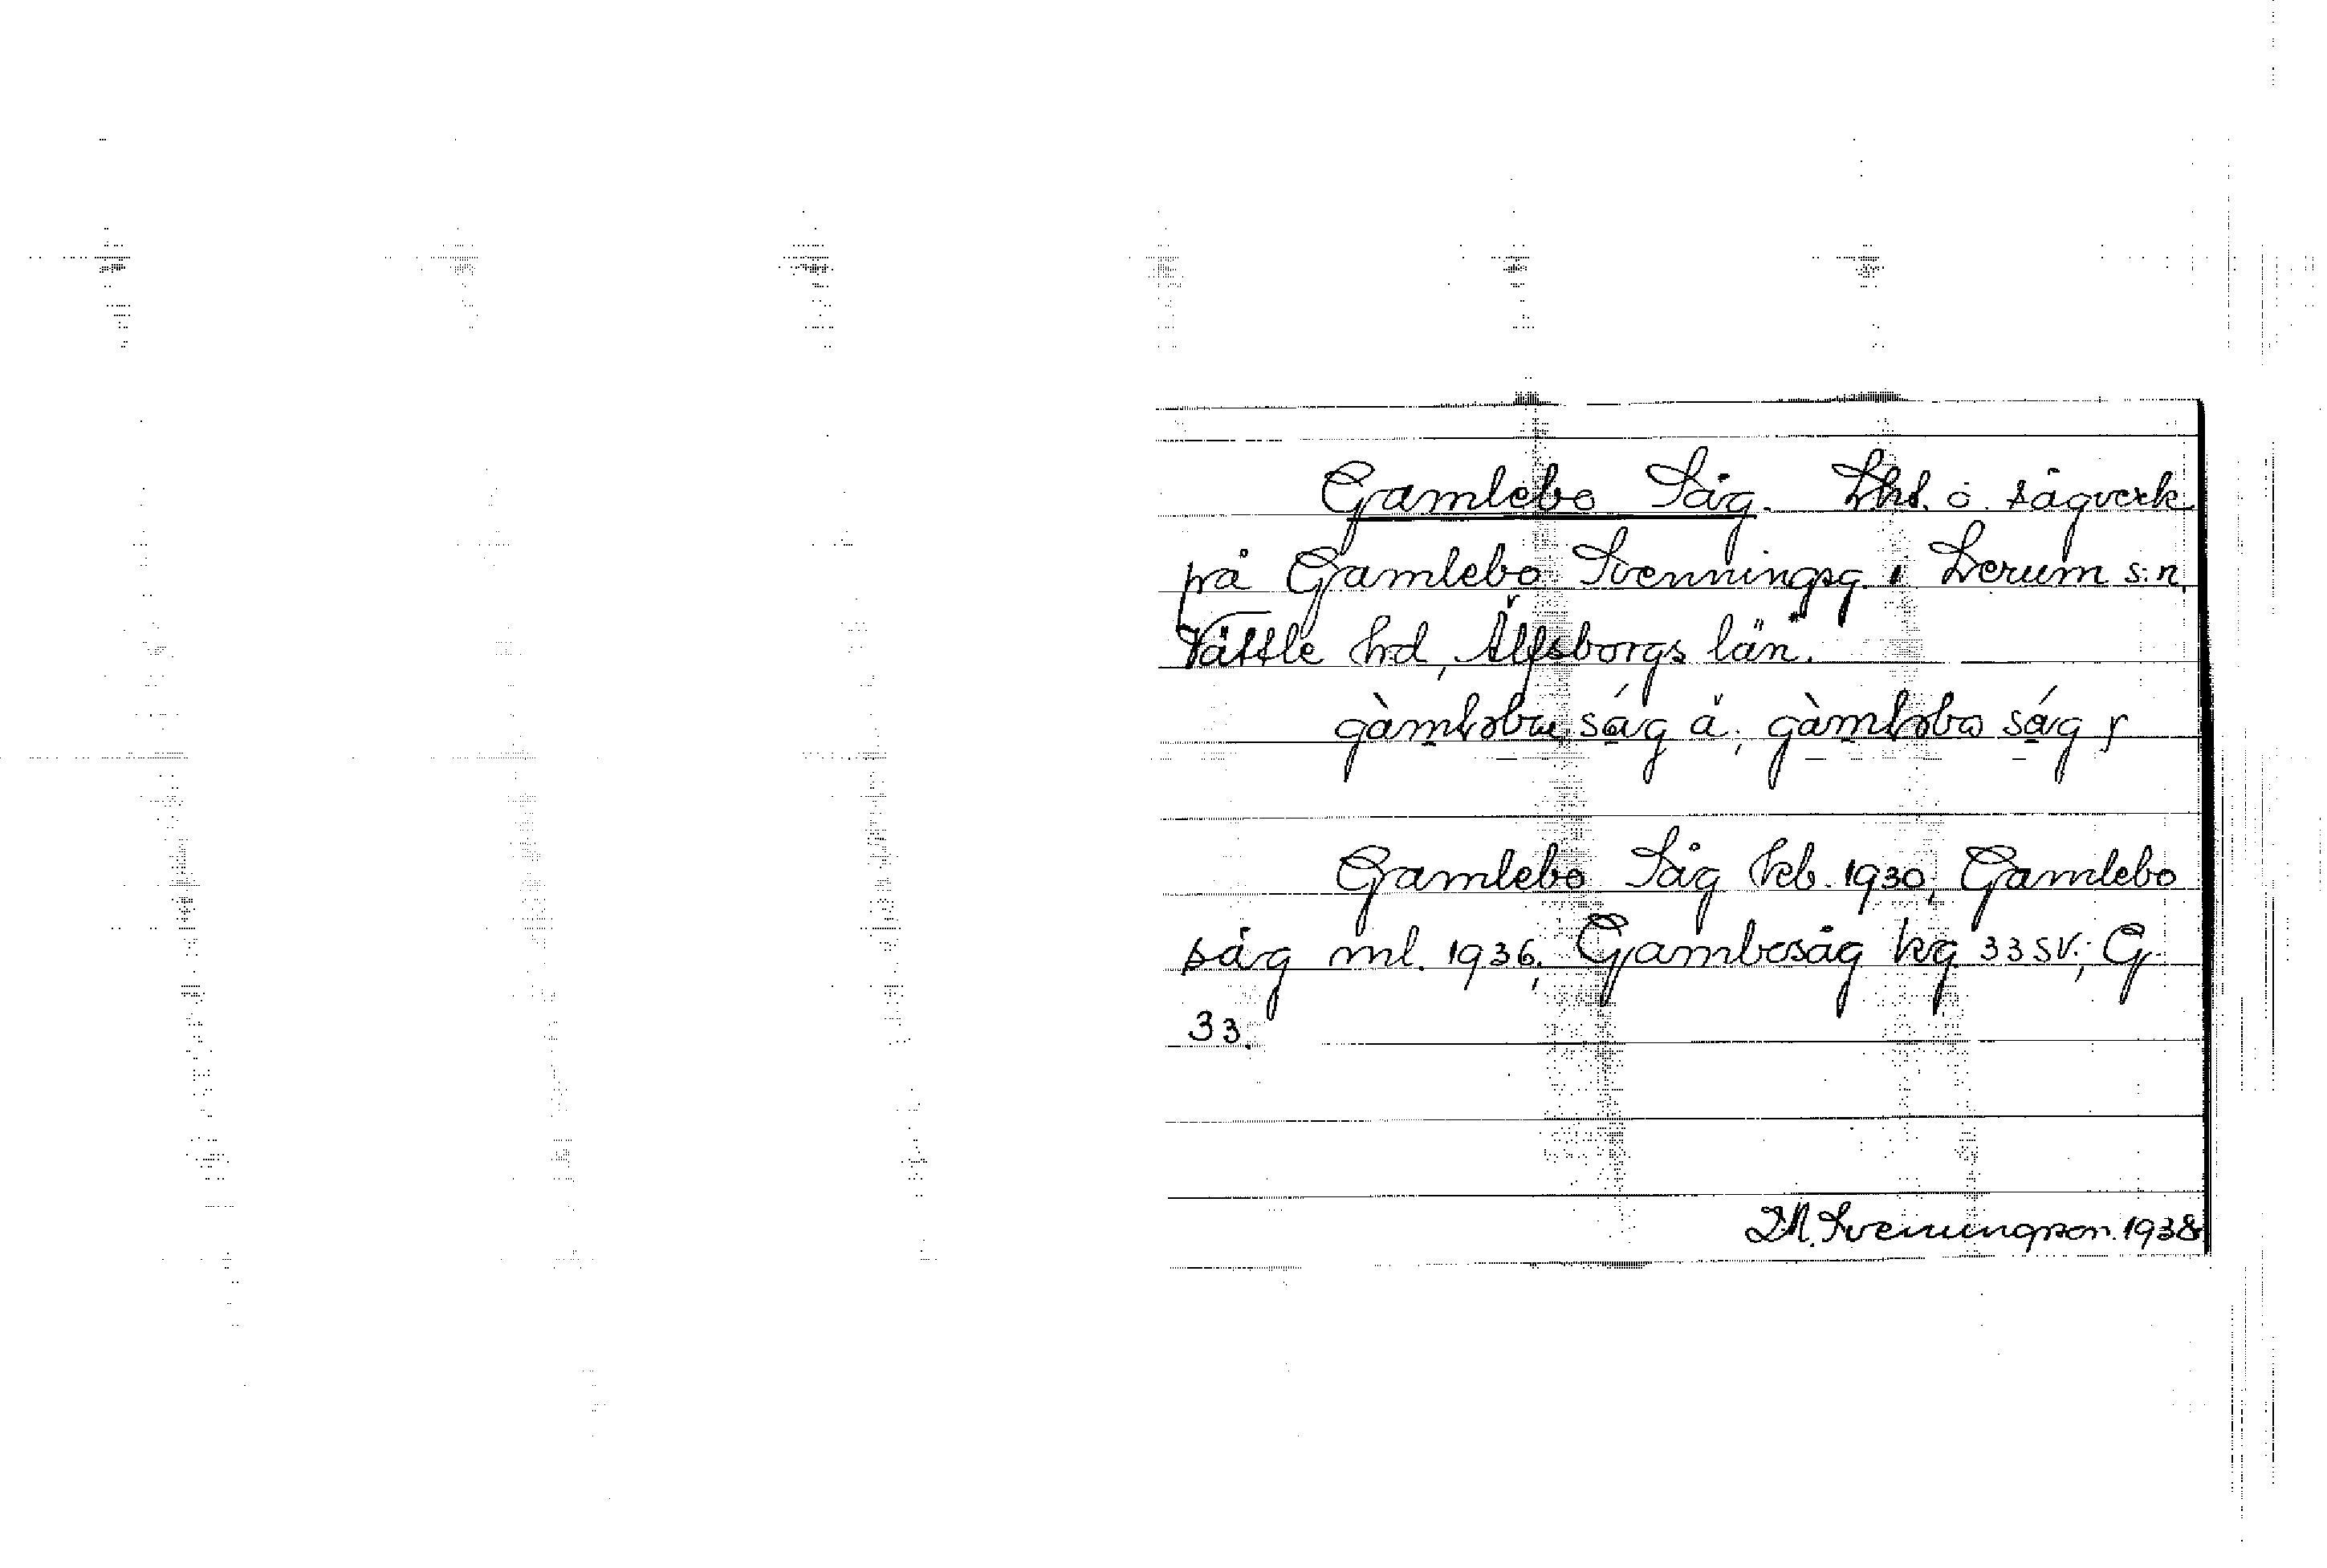 Gamlebo Såg. Lht. o. sågverk
på Gamlebo Svenningsg. i Lerum s:n,
Vättle hd, Älfsborgs län.
såg å; såg
Gamlebo Såg kb. 1930; Gamlebo
såg ml. 1936; Gamlesåg kg 33 SV; G
33.
Svenningson. 1938